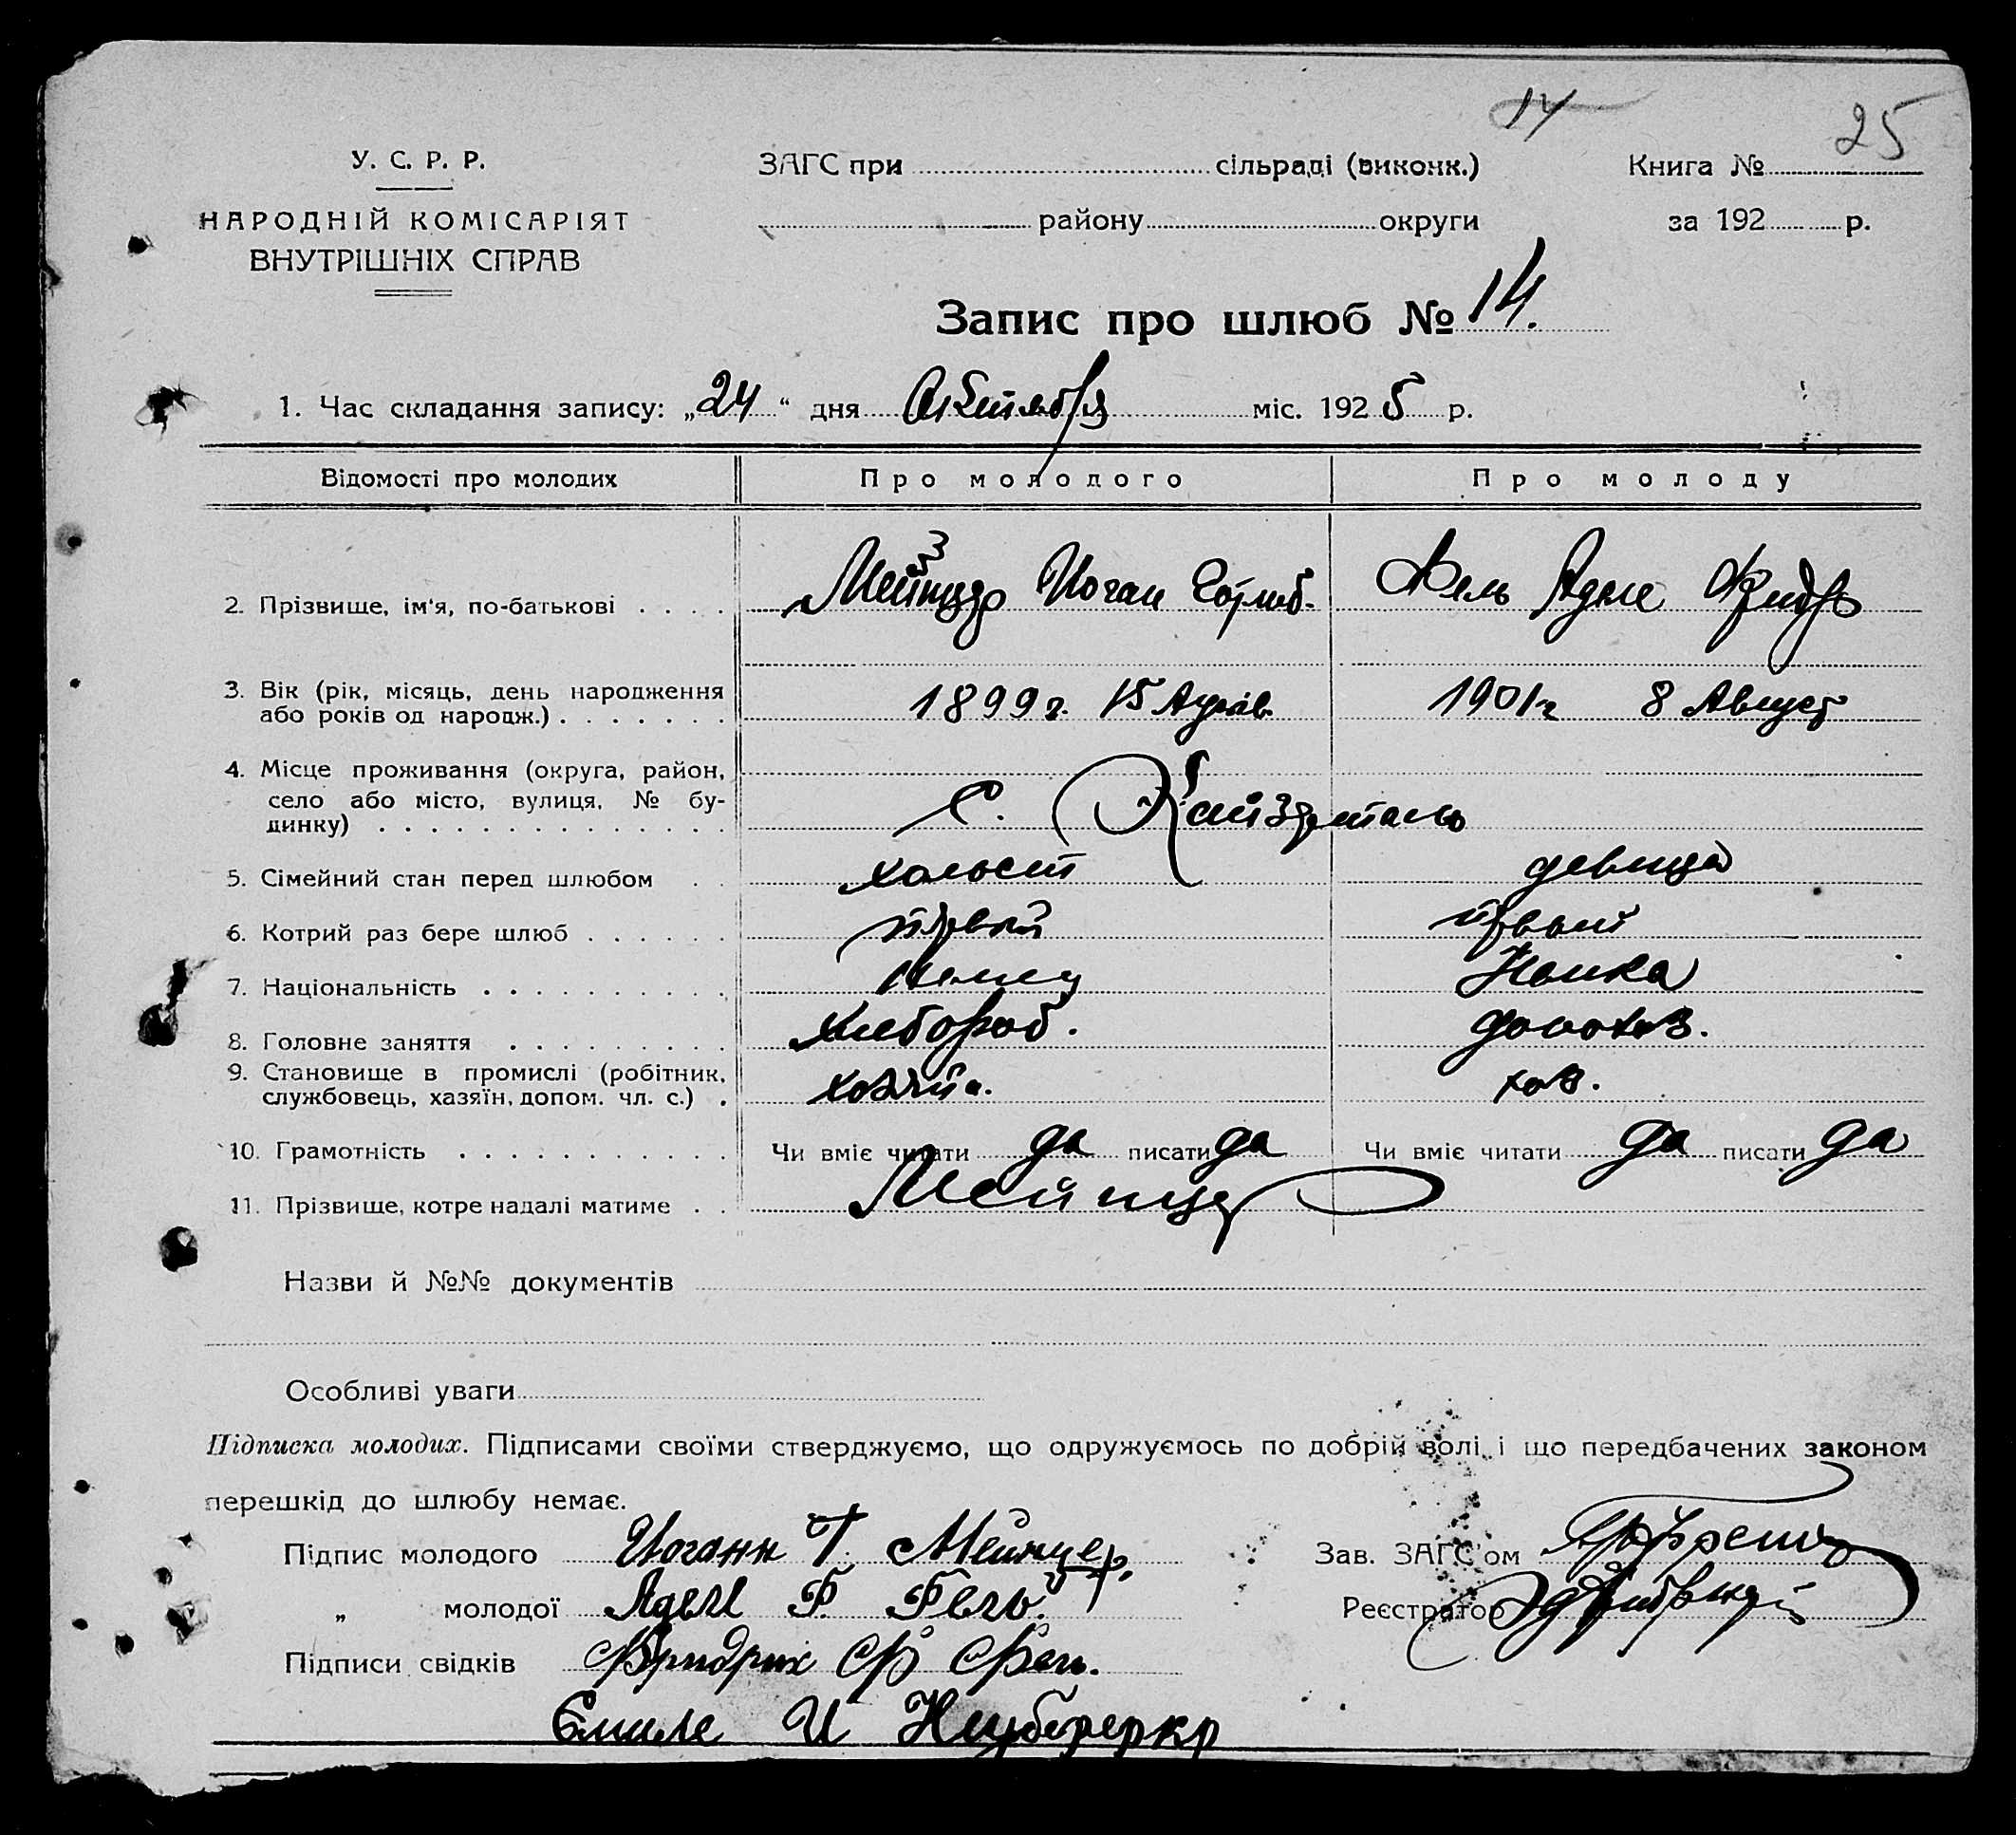 14
25
У. С. Р. Р.
ЗАГС при сільраді (виконк.)
Книга №
НАРОДНІЙ КОМІСАРІЯТ
району округи
за 192 р.
ВНУТРІШНІХ СПРАВ
Запис про шлюб № 14.
1. Час складання запису: „24“ дня Октября міс. 1925 р.
Відомості про молодих Про молодого Про молоду
2. Прізвище, ім'я, по-батькові Мейнцер Иоган Готлиб. Фель Аделе Фридр
3. Вік (рік, місяць, день народження
або років од народж.) 1899 г. 15 1901 г 8 Август
4. Місце проживання (округа, район,
село або місто, вулиця, № бу-
динку) с. Кайзерталь
5. Сімейний стан перед шлюбом холост девица
6. Котрий раз бере шлюб первый первый
7. Національність немец Немка
8. Головне заняття хлебороб. домохоз.
9. Становище в промислі (робітник,
службовець, хазяїн, допом. чл. с.) хозяин. хоз.
10. Грамотність Чи вміє читати да писати да Чи вміє читати да писати да
11. Прізвище, котре надалі матиме Мейнцер
Назви й №№ документів
Особливі уваги
Підписка молодих. Підписами своїми стверджуємо, що одружуємось по добрій волі і що передбачених законом
перешкід до шлюбу немає.
Підпис молодого Иоганн Г. Мейнцер.
Зав. ЗАГС'ом
„ молодої Адели Ф. Фель.
Реєстратор
Підписи свідків Фридрих Ф Фель.
Емиле И